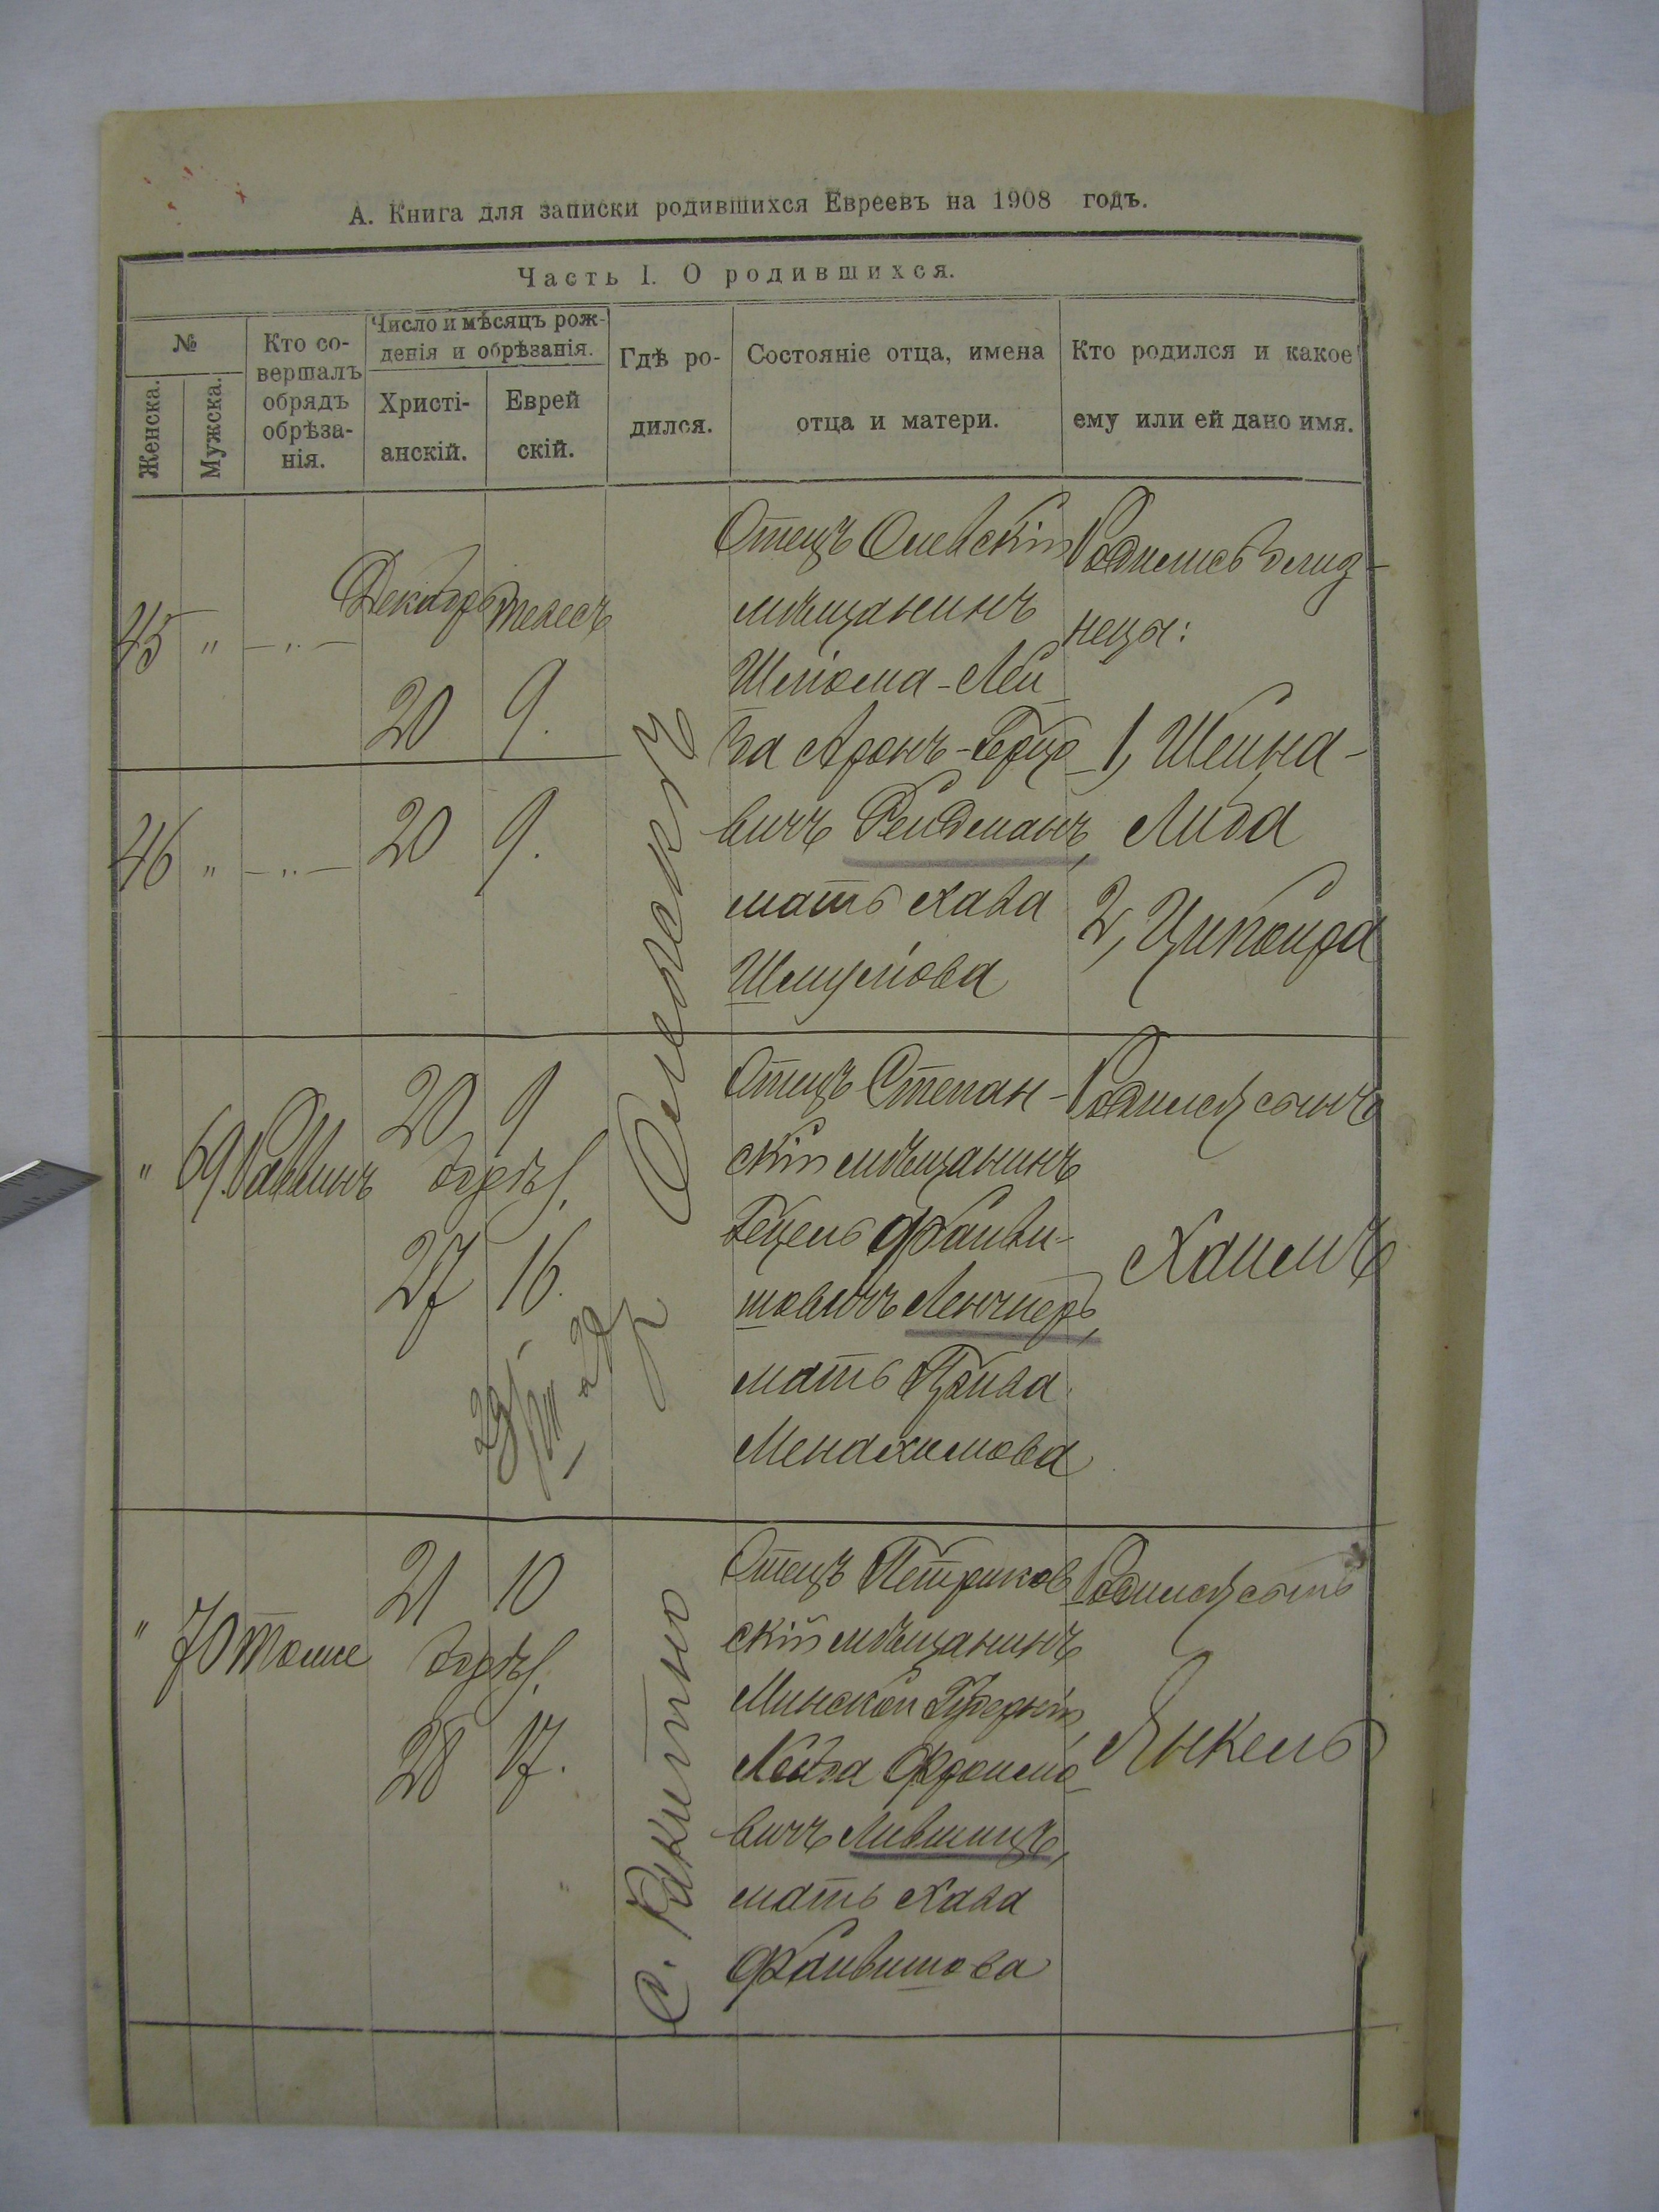 А. Книга для записки родившихся Евреевъ на 1908 годъ.
Часть I. О родившихся.
№
Женска.
Мужска.
Кто со-
вершалъ
обрядъ
обрѣза-
нія.
Число и мѣсяцъ рож-
денія и обрѣзанія.
Христі-
анскій.
Еврей
скій.
Гдѣ ро-
дился.
Состояніе отца, имена
отца и матери.
Кто родился и какое
ему или ей дано имя.
45 " — " —
Декабрь
20
Тевесъ
9.
46 " — " —
20
9.
Олевскъ
Отецъ Олевскій
мѣщанинъ
Шліома-Лей
ба Аронъ-Герцо
вичъ Фельдманъ,
мать Хава
Шмулiова
Родились близ-
нецы:
1, Шейна-
Либа
2, Ципойра
" 69 Раввинъ
20
9
обрѣз.
27
16.
Отецъ Степан-
скій мѣщанинъ
Гецель Файви-
шовичъ Ленчнеръ,
мать
Менахимова
Родился сынъ
Хаимъ
" 70 тоже
21
10
обрѣз.
28
17.
С. Ракитно
Отецъ Петриков
скій мѣщанинъ
Минской Губерніи
Лейба Фроимо
вичъ Лившицъ,
мать Хава
Файвишова
Родился сынъ
Янкель